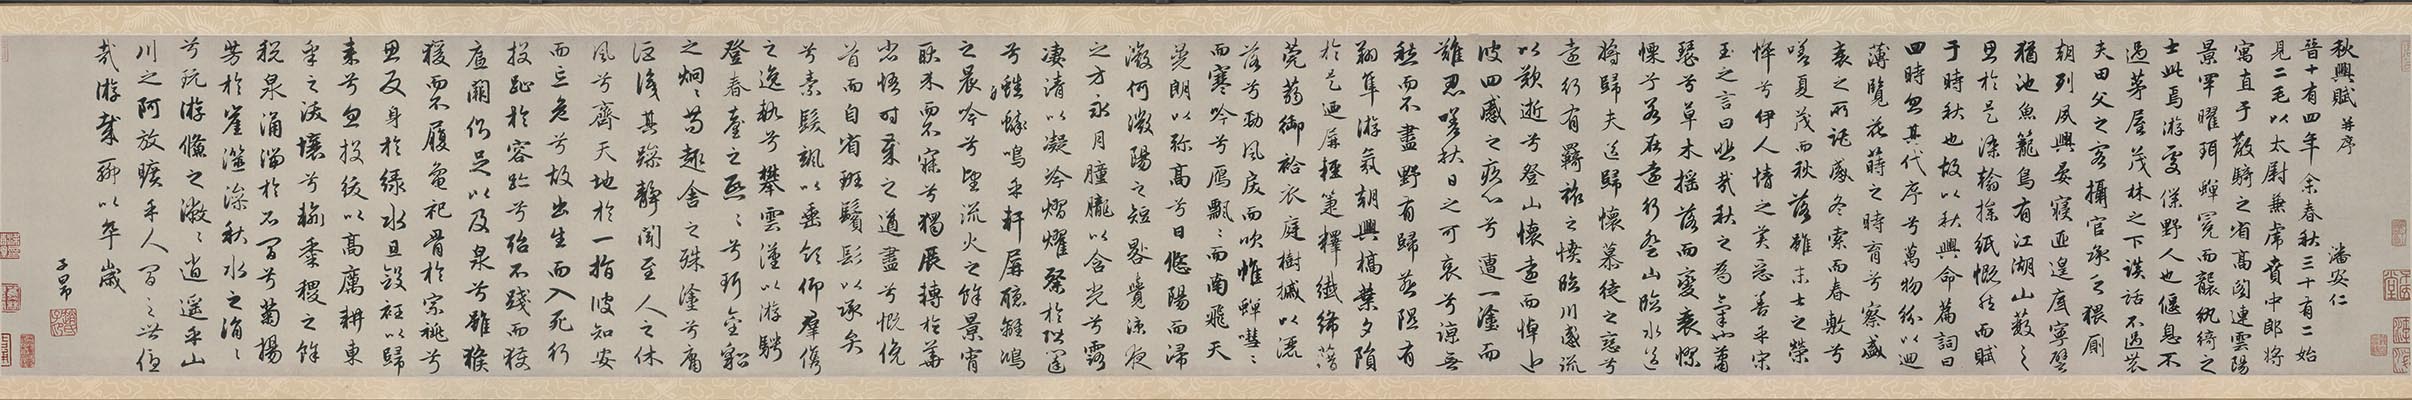 秋興賦 并序
潘安仁
晉十有四年余春秋三十有二始
見二毛以太尉兼虎賁中郎將
寓直于散騎之省高閣連雲陽
景罕曜珥蟬冕而襲紈綺之
士此焉游處僕野人也偃息不
過茅屋茂林之下談話不過農
夫田父之客攝官承乏猥廁
朝列夙興晏寢匪遑底寧譬
猶池魚籠鳥有江湖山藪之
思於是染翰操紙慨然而賦
于時秋也故以秋興命篇詞曰
四時忽其代序兮萬物紛以迴
薄覽花蒔之時育兮察盛
衰之所託感冬索而春敷兮
嗟夏茂而秋落雖末士之榮
悴兮伊人情之美惡善乎宋
玉之言曰悲哉秋之為氣也蕭
瑟兮草木搖落而變衰憀
慄兮若在遠行登山臨水送
將歸夫送歸懷慕徒之戀兮
遠行有羇旅之憤臨川感流
以歎逝兮登山懷遠而悼近
彼四慼之疚心兮遭一塗而
難忍嗟秋日之可哀兮諒無
愁而不盡野有歸燕隰有
翔隼游氛朝興槁葉夕隕
於是迺屏輕箑釋纖絺藉
莞蒻御袷衣庭樹摵以灑
落兮勁風戾而吹帷蟬嘒〻
而寒吟兮鴈飄〻而南飛天
晃朗以彌高兮日悠陽而浸
微何微陽之短晷覺涼夜
之方永月朣朧以含光兮露
凄清以凝冷熠燿粲於階闥
兮蟋蟀鳴乎軒屏聽離鴻
之晨吟兮望流火之餘景宵
耿介而不寐兮獨展轉於華
省悟時歲之遒盡兮慨俛
首而自省斑鬢髟以承弁
兮素髮颯以垂領仰羣儁
之逸軌兮攀雲漢以游騁
登春臺之熙〻兮珥金貂
之炯〻苟趣舍之殊塗兮庸
詎識其躁靜聞至人之休
風兮齊天地於一指彼知安
而忘危兮故出生而入死行
投趾於容跡兮殆不踐而獲
底闕側足以及泉兮雖猴
猨而不履龜祀骨於宗祧兮
思反身於綠水且斂衽以歸
來兮忽投紱以高厲耕東
皋之沃壤兮輸黍稷之餘
稅泉涌湍於石間兮菊揚
芳於崖澨澡秋水之涓〻
兮玩游鯈之潎〻逍遙乎山
川之阿放曠乎人間之世優
哉游哉聊以卒歲
子昂